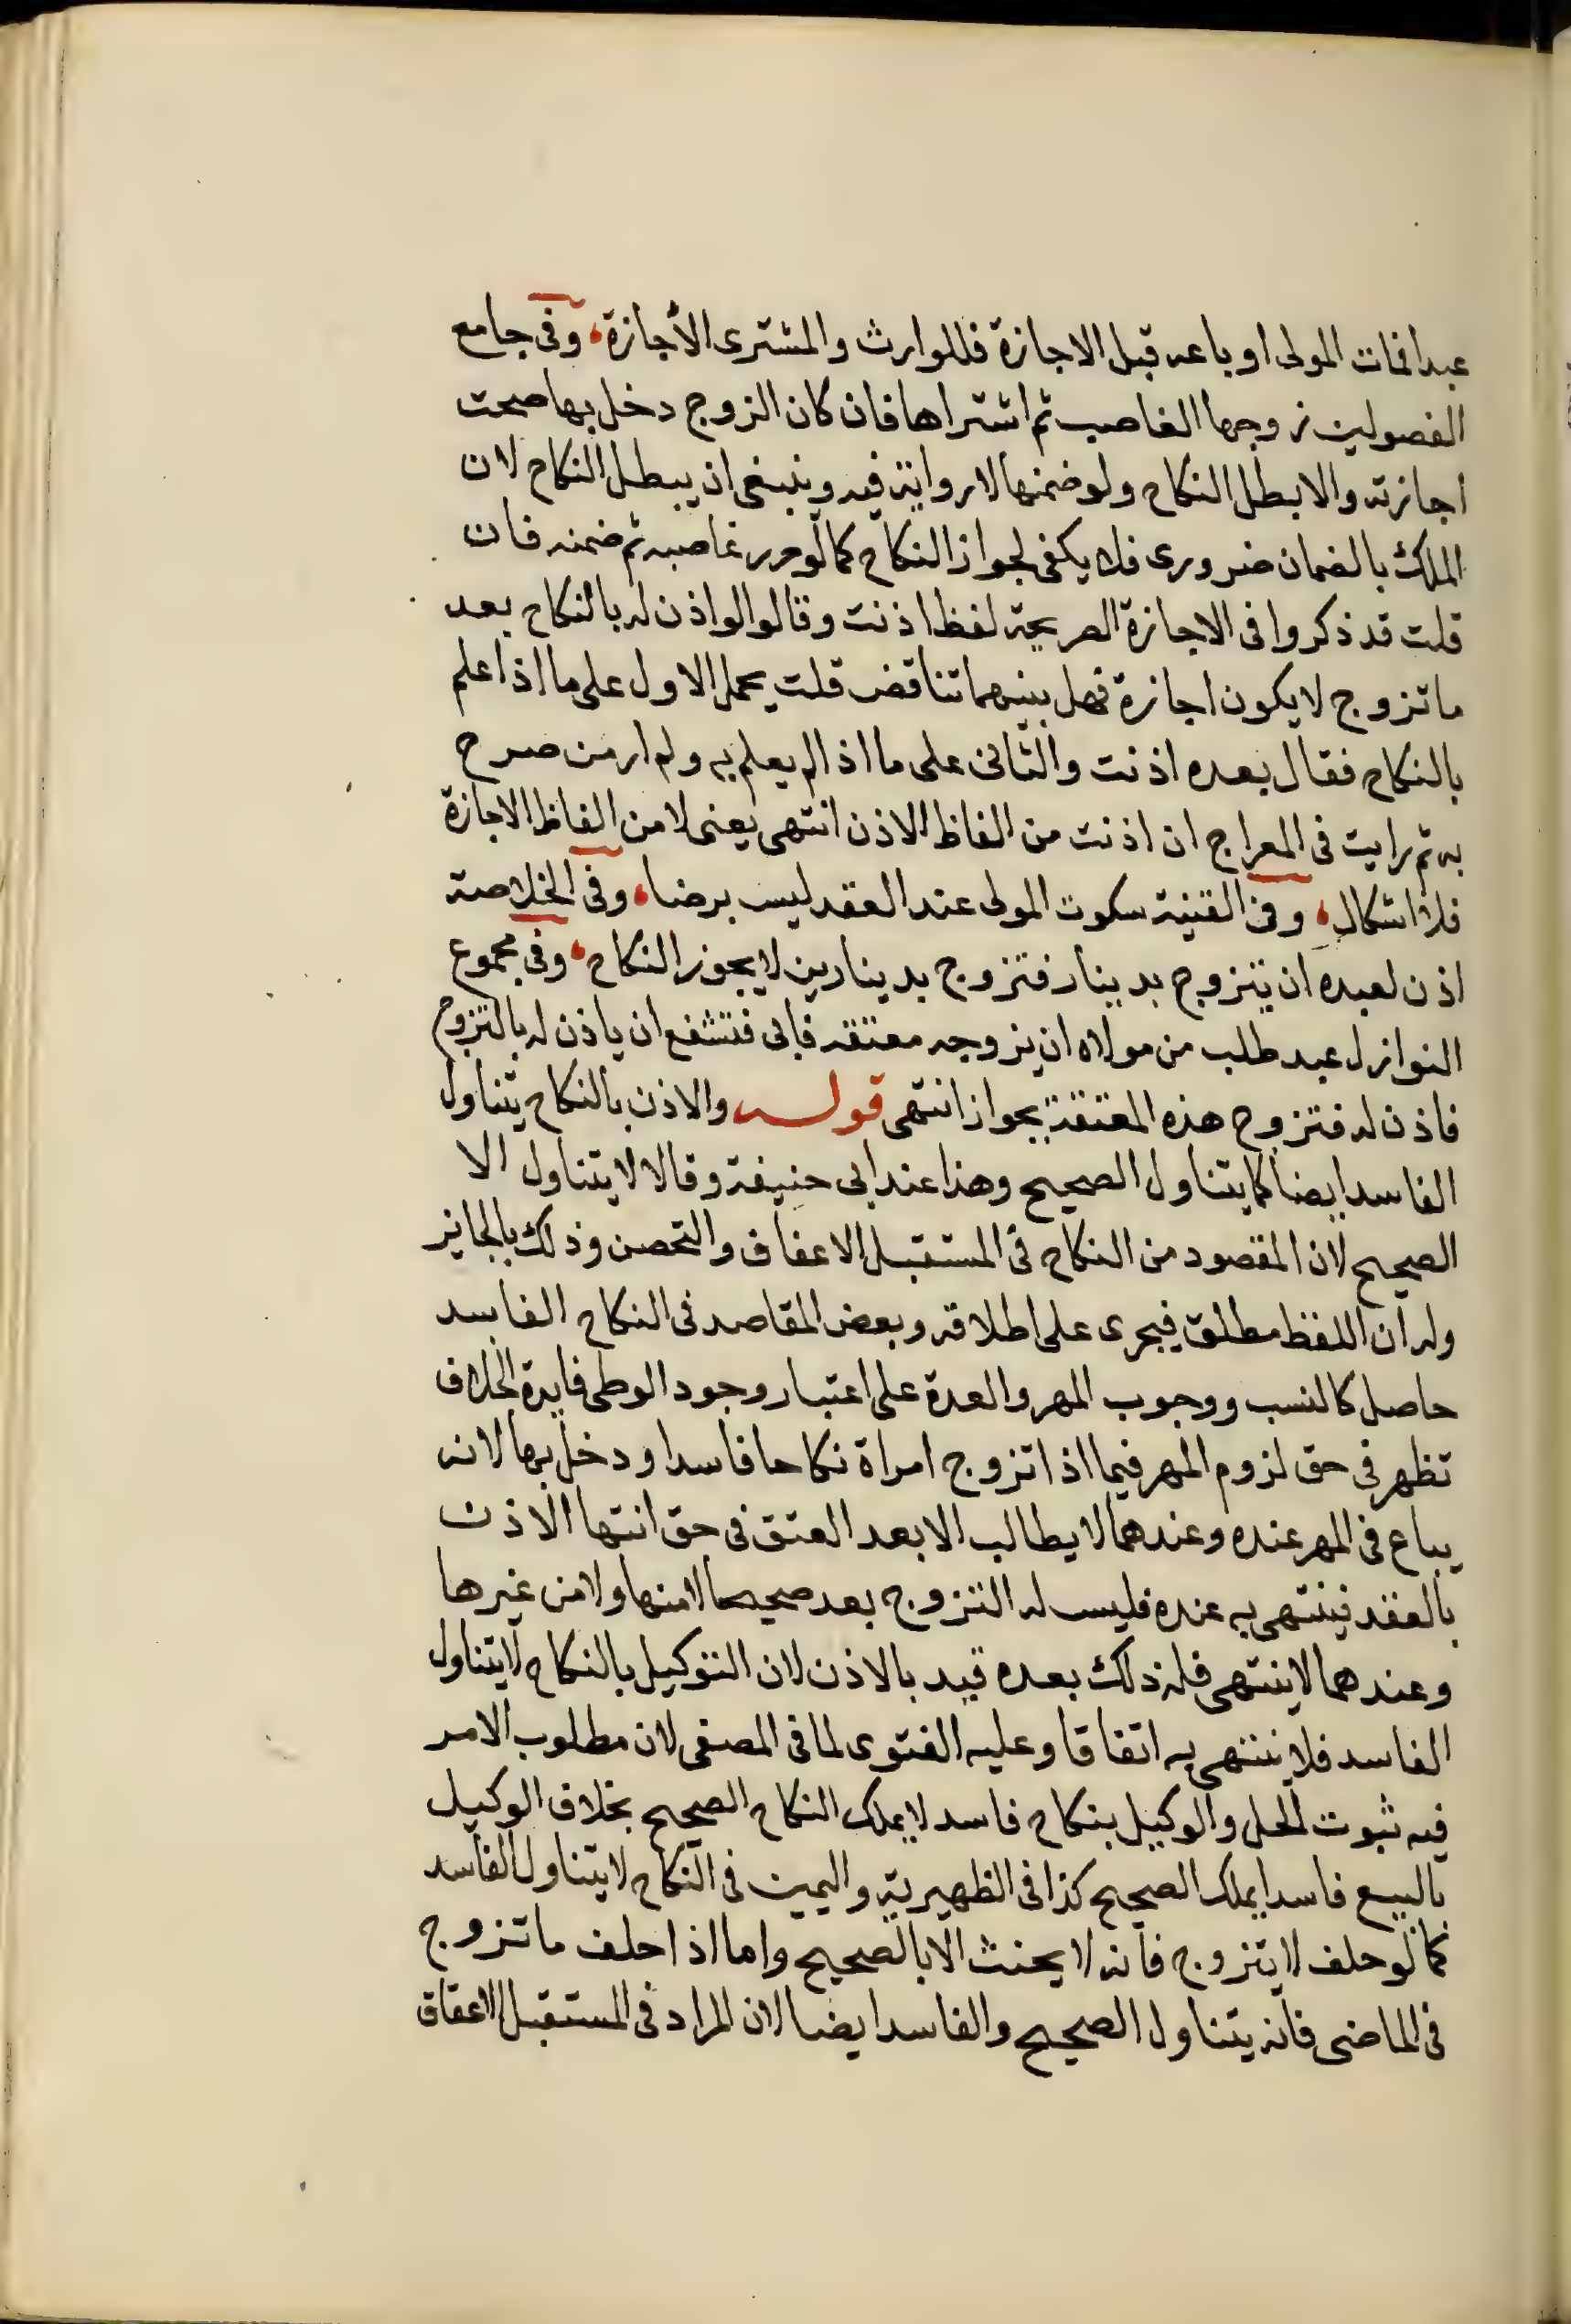 عبدا فمات المولى او باعه قبل الاجازة فللوارث والمشترى الاجازة، وفى جامع
الفصولين زوجها الغاصب ثم اشتراها فان كان الزوج دخل بها صحت
اجازته والا بطل النكاح ولو ضمنها لا رواية فيه وينبغى ان يبطل النكاح لان
الملك بالضمان ضرورى فلا يكفى لجواز النكاح كما لو حرر غاصبه ثم ضمنه فان
قلت قد ذكروا فى الاجازة الصريحة لفظ اذنت وقالوا لو اذن له بالنكاح بعد
ما تزوج لا يكون اجازة فهل بينهما تناقض قلت يحمل الاول على ما اذا علم
بالنكاح فقال بعده اذنت والثانى على ما اذا لم يعلم به ولم ار من صرح
به ثم رايت فى المعراج ان اذنت من الفاظ الاذن انتهى يعنى لا من الفاظ الاجازة
فلا اشكال، وفى القنية سكوت المولى عند العقد ليس برضا، وفى الخلاصة
اذن لعبده ان يتزوج بدينار فتزوج بدينارين لا يجوز النكاح، وفى مجموع
النوازل عبد طلب من مولاه ان يزوجه معتقه فابى فتشفع ان ياذن له بالتزوج
فاذن له فتزوج هذه المعتقة يجوز انتهى قوله والاذن بالنكاح يتناول
الفاسد ايضا كما يتناول الصحيح وهذا عند ابى حنيفة وقالا لا يتناول الا
الصحيح لان المقصود من النكاح فى المستقبل الاعفاف والتحصن وذلك بالجايز
وله ان اللفظ مطلق فيجرى على اطلاقه وبعض المقاصد فى النكاح الفاسد
حاصل كالنسب ووجوب المهر والعدة على اعتبار وجود الوطى فايدة الخلاف
تظهر فى حق لزوم المهر فيما اذا تزوج امراة نكاحا فاسدا ودخل بها لانه
يباع فى المهر عنده وعندهما لا يطالب الا بعد العتق فى حق انتها الاذن
بالعقد فينتهى به عنده فليس له التزوج بعد صحيحا لا منها ولا من غيرها
وعندهما لا ينتهى فله ذلك بعده قيد بالاذن لان التوكيل بالنكاح لا يتناول
الفاسد فلا ينتهى به اتفاقا وعليه الفتوى لما فى المصفى لان مطلوب الامر
فيه ثبوت الحل والوكيل بنكاح فاسد لا يملك النكاح الصحيح بخلاف الوكيل
بالبيع فاسدا يملك الصحيح كذا فى الظهيرية واليمين فى النكاح لا يتناول الفاسد
كما لو حلف لا يتزوج فانه لا يحنث الا بالصحيح واما اذا حلف ما تزوج
فى الماضى فانه يتناول الصحيح والفاسد ايضا لان المراد فى المستقبل الاعفاف